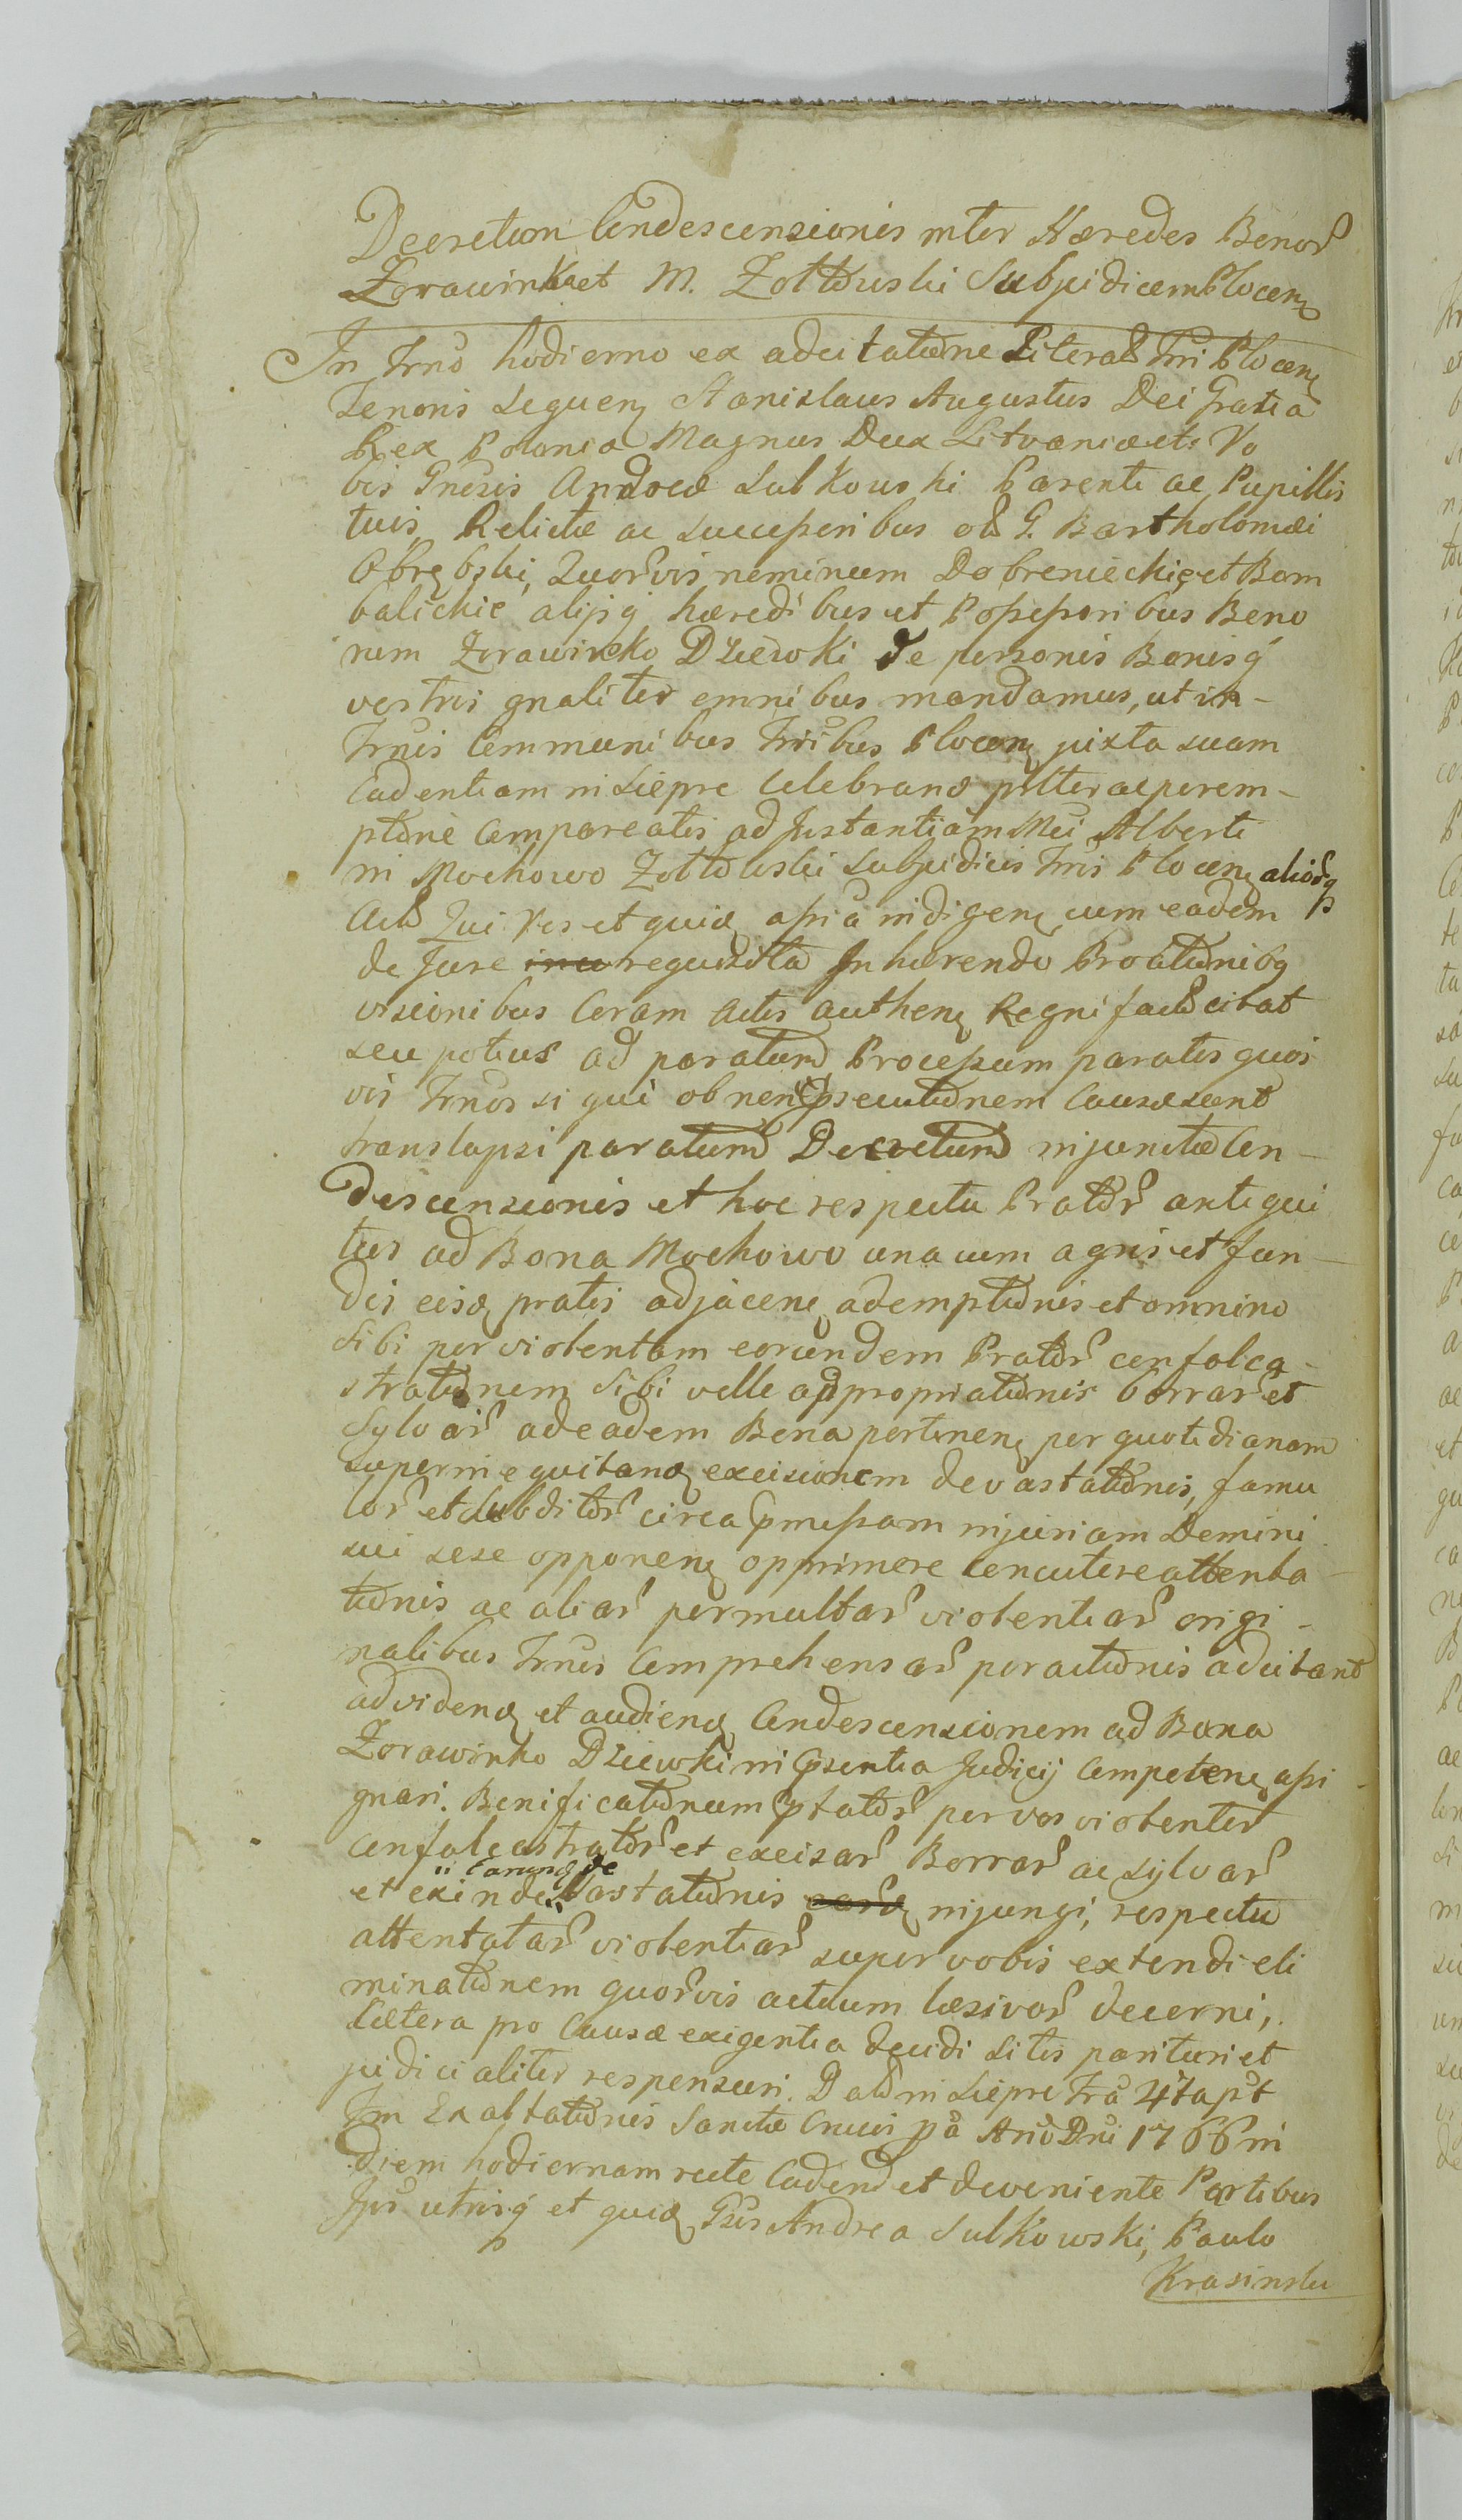 Decretum Condescensionis inter Hæredes Bonor
Zorawinka et M. Zołtowski Subjudicem Plocen
In Trno hodierno ex adcitatione Literali Trri Plocen
Tenoris Sequen Stanislaus Augustus Dei Gratia
Rex Polonia Magnus Dux Litvaniæ etc Vo
bis Gnosis Andreæ Sulkowski Parenti ac Pupillis
tuis Relictæ ac Successoribus olim G. Bartholomæi
Obrębski, Quorvis neminum Dobreniechie et Bom
balickie alijsq hæredibus et Possessoribus Bono
rum Zorawinko Dziewki de personis Bonisq
vestris gnaliter omnibus mandamus, ut in-
Trnis Communibus Trribus Plocen juxta suam
Cadentiam in Siepre Celebrand pltter ac perem-
ptorie Compareatis ad Instantiam Mci Alberti
in Mochowo Zołtowski Subjudicis Trris Plocen aliorq
Act Qui Vos et quid assa indigen cum eadem
de Jure requisita Inhærendo Proationibq
visionibus Coram Actis authen Regni fact citat
seu potius ad paratum Processum paratis quos
vis Trnos si qui ob non psecutionem Causæ sunt
translapsi paratum Decretum injunctæ Con-
descensionis et hoc respectu Prator antiqui
tus ad Bona Mochowo una cum agris et fun-
dis eisd pratis adjacen ademptionis et omnino
Sibi per violentam eorundem Prator confalca-
strationem Sibi velle adpropriationis Borrar et
Sylvar ad eadem Bona pertinen per quotidianam
superinequitand excisionem devastationis, famu
lor et Subditor circa pmissam injuriam Domini
sui sese opponen opprimere Concutere attenta-
tionis ac aliar permultar violentiar origi-
nalibus Trnis Comprehensar peractionis adcitant
ad vidend et audiend Condescensionem ad Bona
Zorawinko Dziewki in psentia Judicij Competen assi-
gnari. Bonificationum ptator per vos violenter
confalcastrator et excisar Borrar ac Sylvar
et exinde earund devastationis injungi, respectu
attentatar violentiar super vobis extendi eli
minationem quorvis actuum læsivor decerni,
Cætera pro Causæ exigentia decidi Sitis parituri et
judicialiter responsuri. Dat in Siepre Fra 4ta pst
Fm Exaltationis Sanctæ Crucis pa Ano Dni 1766 in
diem hodiernam recte Cadend et deveniente Partibus
Ips utrisq et quid Gsis Andrea Sulkowski, Paulo
Krasinski